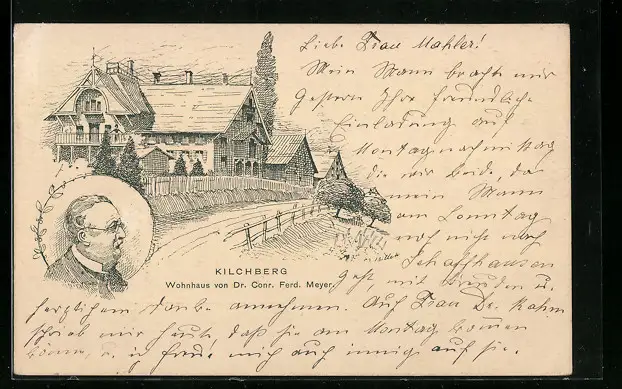 Liebe Frau Mahler!
Mein Mann brachte mir
gestern Ihre freundliche
Einladung auf
Montagnachmittag
die wir beide, da
mein Mann
am Sonntag
noch nicht nach
Schaffhausen
geht, mit Freuden u.
herzlichem Danke annehmen. Auf Frau Dr. Rahm
schrieb mir heute daß sie am Montag kommen
könne, u. ich freue mich auch innig auf sie.
KILCHBERG
Wohnhaus von Dr. Conr. Ferd. Meyer.